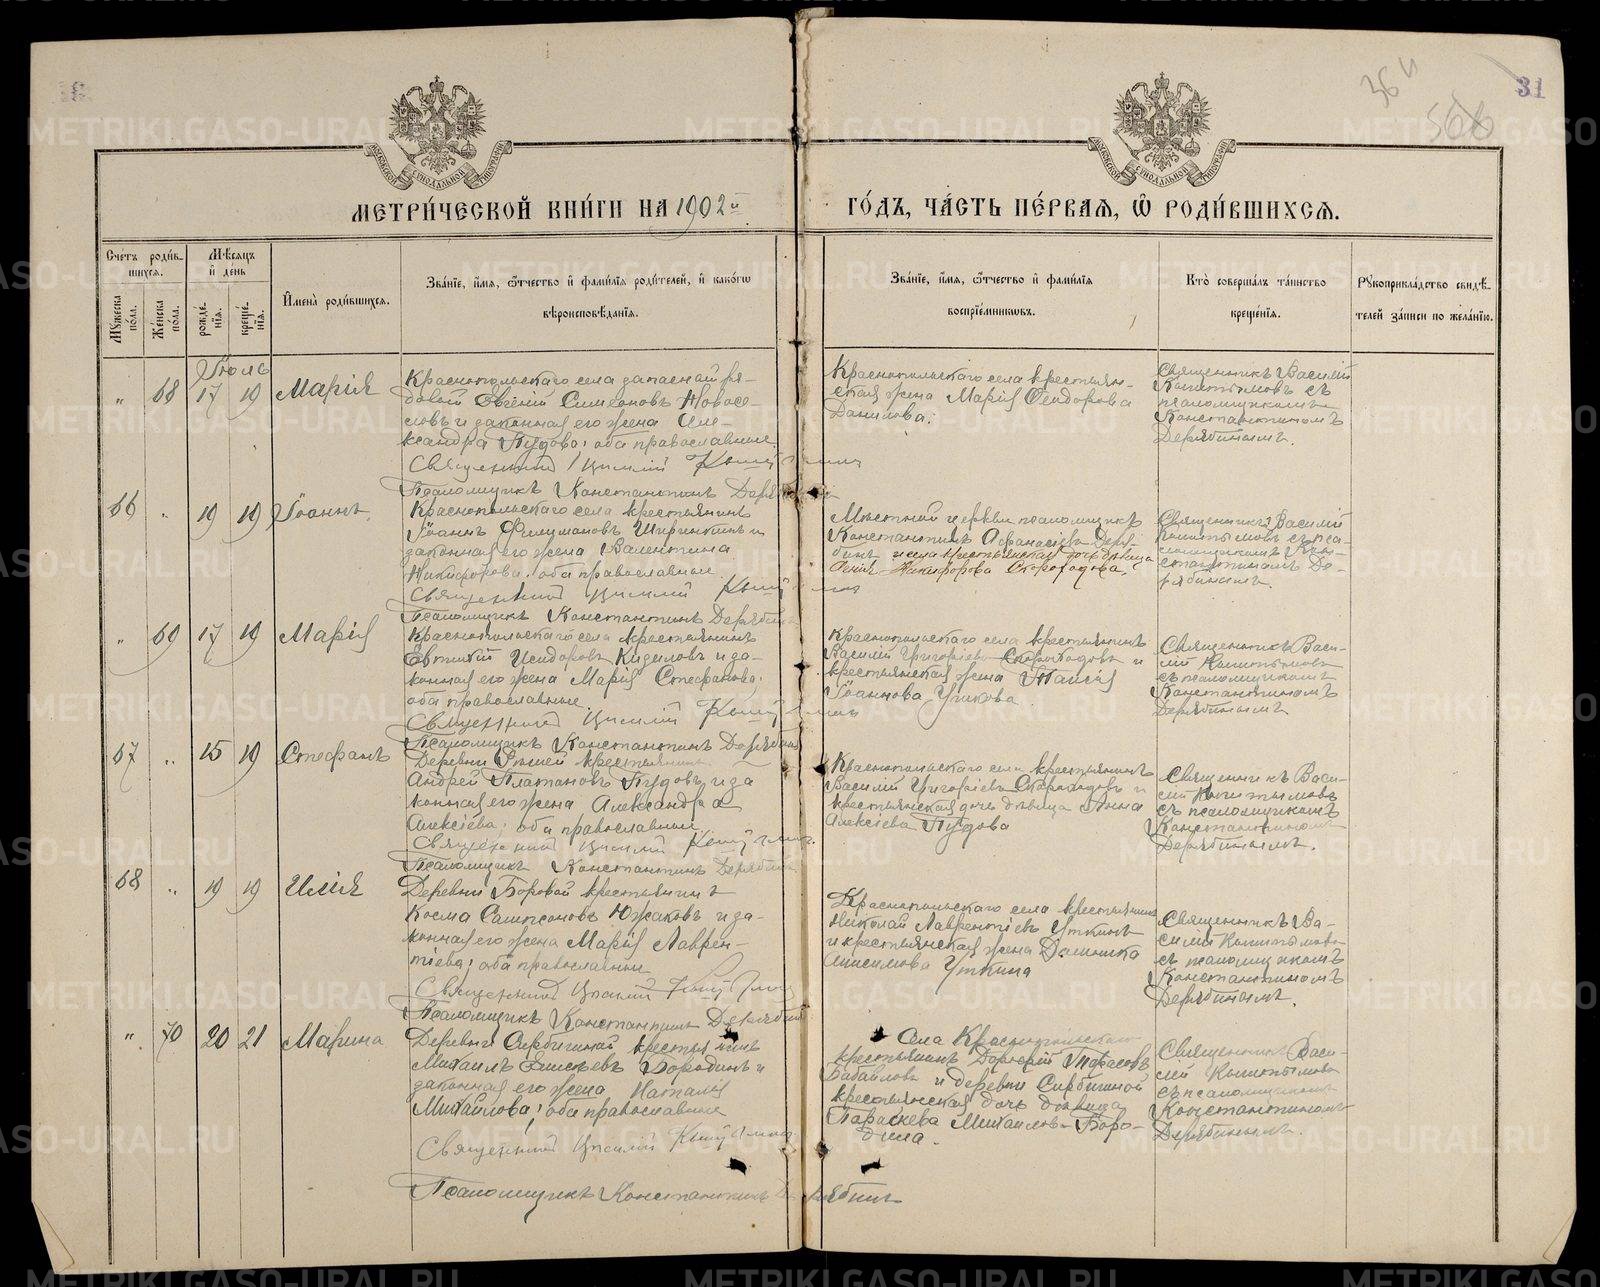 31
36 и
566
МОСКОВСКОЙ СУНОДАЛЬНОЙ ТИПОГРАФІИ
МОСКОВСКОЙ СУНОДАЛЬНОЙ ТИПОГРАФІИ
МЕТРИ́ЧЕСКОЙ КНИ́ГИ НА 1902й ГО́ДЪ, ЧА́СТЬ ПЕ́РВАЯ, Ѡ РОДИ́ВШИХСЯ.
Сче́тъ роди́в-
шихся.
Мѣсяцъ
и҆ день
Мꙋ́жеска по́ла.
Же́нска по́ла.
рожде́нїя.
креще́нїя.
И҆мена̀ роди́вшихся.
Зва́нїе, и҆́мя, ѻ҆́тчество и҆ фами́лїя роди́телей, и҆ како́гѡ
вѣроисповѣ́данїя.
Зва́нїе, и҆́мя, ѻ҆́тчество и҆ фами́лїя
воспрїе́мникѡвъ.
Кто̀ соверша́лъ та́инство
креще́нїя.
Рꙋкоприкла́дство свидѣ́-
телей за́писи по жела́нїю.
Іюль
„ 68 17 19 Марія
Краснопольскаго села запасной ря-
довой Евгеній Симеоновъ Новосе-
ловъ и законная его жена Але-
ксандра Пудова; оба православные.
Священникъ Василій Кыштымовъ
Псаломщикъ Константинъ Дерябинъ
Краснопольскаго села крестьян-
ская жена Марія Ѳеодорова
Данилова.
Священникъ Василій
Кыштымовъ съ
псаломщикомъ
Константиномъ
Дерябинымъ.
66 „ 19 19 Іоаннъ
Краснопольскаго села крестьянинъ
Іоаннъ Филимоновъ Ширинкинъ и
законная его жена Валентина
Никифорова; оба православные.
Священникъ Василій Кыштымовъ
Псаломщикъ Константинъ Дерябинъ
Мѣстной церкви псаломщикъ
Константинъ Аѳанасіевъ Деря-
бинъ и села крестьянская дочь дѣвица
Никифорова Скороходова.
Священникъ Василій
Кыштымовъ съ пса-
ломщикомъ Кон-
стантиномъ Де-
рябинымъ.
„ 69 17 19 Марія
Краснопольскаго села крестьянинъ
Евтихій Исидоровъ Кидиловъ и за-
конная его жена Марія Стефанова;
оба православные.
Священникъ Василій Кыштымовъ
Псаломщикъ Константинъ Дерябинъ
Краснопольскаго села крестьянинъ
Василій Григоріевъ Скороходовъ и
крестьянская жена Таисія
Іоаннова Упикова
Священникъ Васи-
лій Кыштымовъ
съ псаломщикомъ
Константиномъ
Дерябинымъ
67 „ 15 19 Стефанъ
Деревни крестьянинъ
Андрей Платоновъ Пудовъ и за
конная его жена Александра
Алексіева; оба православные.
Священникъ Василій Кыштымовъ
Псаломщикъ Константинъ Дерябинъ
Краснопольскаго села крестьянинъ
Василій Григоріевъ Скороходовъ и
крестьянская дочь дѣвица Анна
Алексіева Пудова
Священникъ Васи-
лій Кыштымовъ
съ псаломщикомъ
Константиномъ
Дерябинымъ.
68 „ 19 19 Илія
Деревни Боровой крестьянинъ
Косма Сампсоновъ Южаковъ и за-
конная его жена Марія Лаврен-
тіева; оба православные
Священникъ Василій Кыштымовъ
Псаломщикъ Константинъ Дерябинъ
Краснопольскаго села крестьянинъ
Николай Лаврентіевъ Уткинъ
и крестьянская жена Домника
Анисимова Уткина
Священникъ Ва-
силій Кыштымовъ
съ псаломщикомъ
Константиномъ
Дерябинымъ.
„ 70 20 21 Марина
Деревни Сербишной крестьянинъ
Михаилъ Елисѣевъ Бородинъ и
законная его жена Наталія
Михаилова; оба православные
Священникъ Василій Кыштымовъ
Псаломщикъ Константинъ Дерябинъ
Села Краснопольскаго
крестьянинъ Дорофей Тарасовъ
Бабайловъ и деревни Сербишной
крестьянская дочь дѣвица
Параскева Михаилова Боро-
дина.
Священникъ Васи-
лій Кыштымовъ
съ псаломщикомъ
Константиномъ
Дерябинымъ.
METRIKI.GASO-URAL.RU